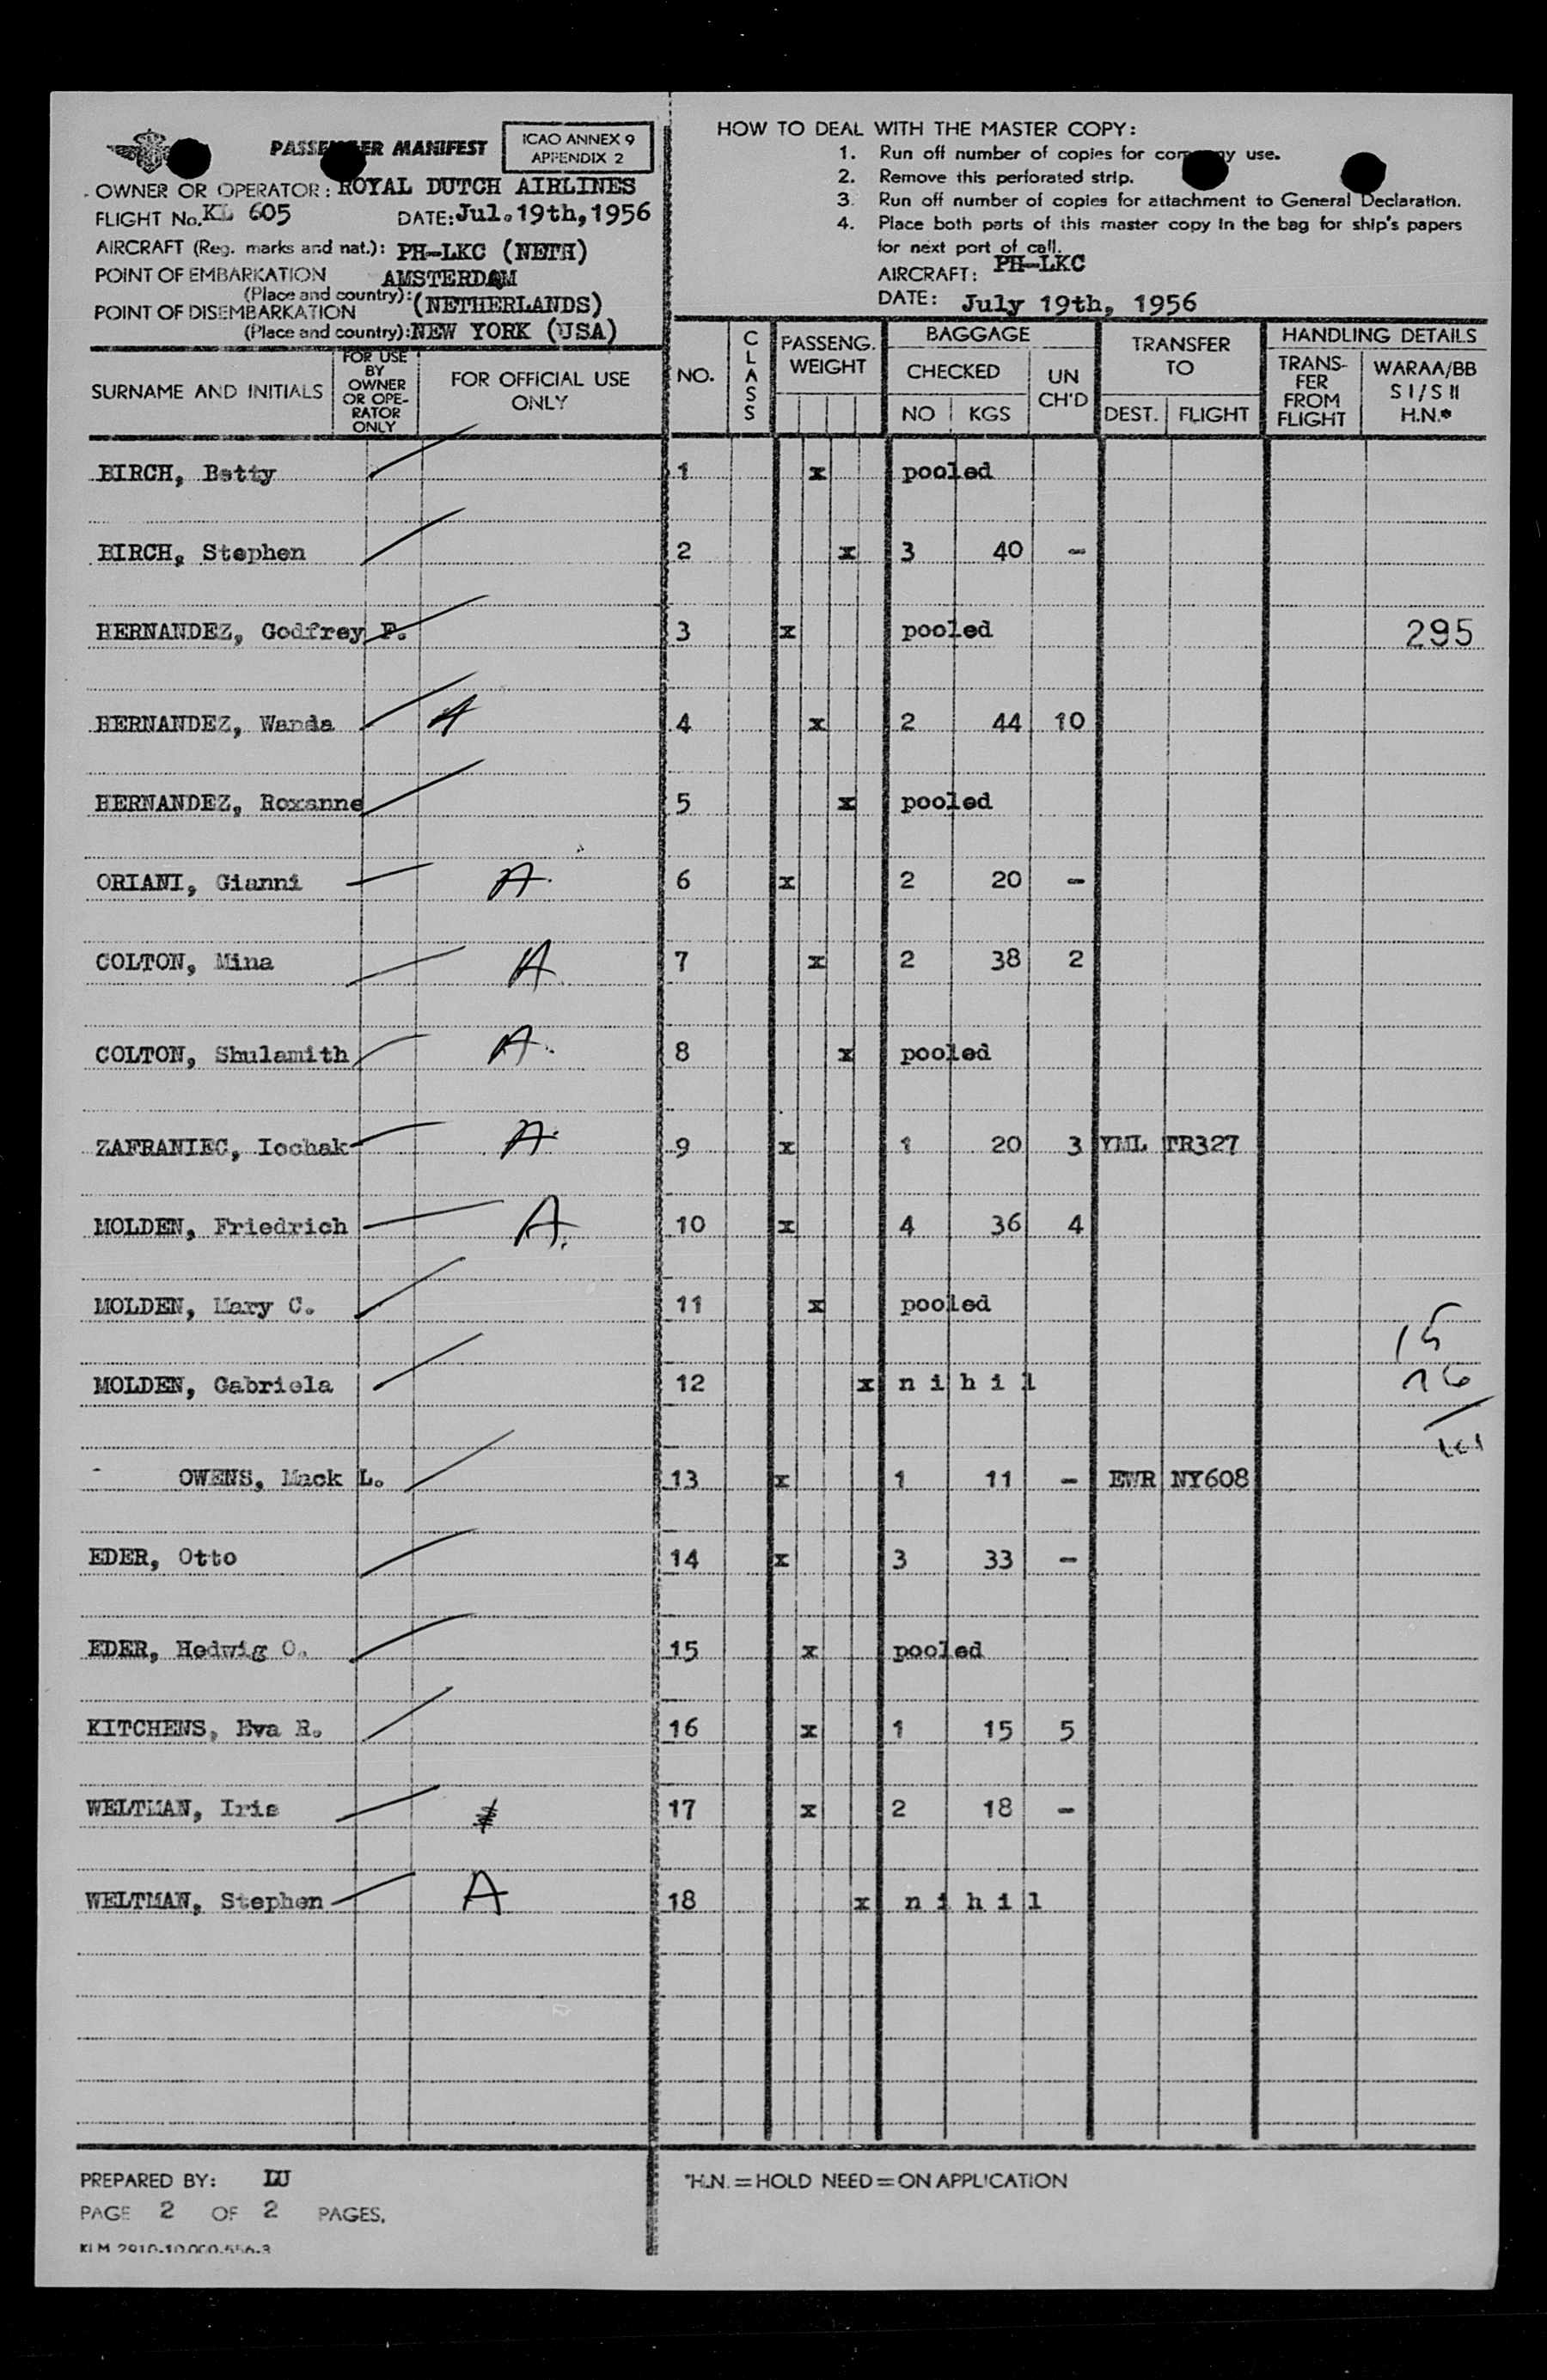 PASSENGER MANIFEST
ICAO ANNEX 9
APPENDIX 2
OWNER OR OPERATOR: ROYAL DUTCH AIRLINES
FLIGHT No. KL 605 DATE: Jul.19th,1956
AIRCRAFT (Reg. marks and nat.): PH-LKC (NETH)
POINT OF EMBARKATION AMSTERDAM
(Place and country): (NETHERLANDS)
POINT OF DISEMBARKATION
(Place and country): NEW YORK (USA)
HOW TO DEAL WITH THE MASTER COPY:
1. Run off number of copies for company use.
2. Remove this perforated strip.
3. Run off number of copies for attachment to General Declaration.
4. Place both parts of this master copy in the bag for ship's papers
for next port of call.
AIRCRAFT: PH-LKC
DATE: July 19th, 1956
SURNAME AND INITIALS
FOR USE BY OWNER OR OPE- RATOR ONLY
FOR OFFICIAL USE ONLY
NO.
CLASS
PASSENG. WEIGHT
BAGGAGE
CHECKED
NO KGS
UN CH'D
TRANSFER TO
DEST. FLIGHT
HANDLING DETAILS
TRANS- FER FROM FLIGHT
WARAA/BB S I/S II H.N.*
BIRCH, Betty 1 x pooled
BIRCH, Stephen 2 x 3 40 -
HERNANDEZ, Godfrey P. 3 x pooled 295
HERNANDEZ, Wanda A 4 x 2 44 10
HERNANDEZ, Roxanne 5 x pooled
ORIANI, Gianni A 6 x 2 20 -
COLTON, Mina A 7 x 2 38 2
COLTON, Shulamith A 8 x pooled
ZAFRANIEC, Iochak A 9 x 1 20 3 YML TR327
MOLDEN, Friedrich A 10 x 4 36 4
MOLDEN, Mary C. 11 x pooled
15
MOLDEN, Gabriela 12 x nihil 16
OWENS, Mack L. 13 x 1 11 - EWR NY608
EDER, Otto 14 x 3 33 -
EDER, Hedwig O. 15 x pooled
KITCHENS, Eva R. 16 x 1 15 5
WELTMAN, Iris 17 x 2 18 -
WELTMAN, Stephen A 18 x nihil
PREPARED BY: LU
PAGE 2 OF 2 PAGES.
*H.N. = HOLD NEED = ON APPLICATION
KLM 2910-10.000-556-3